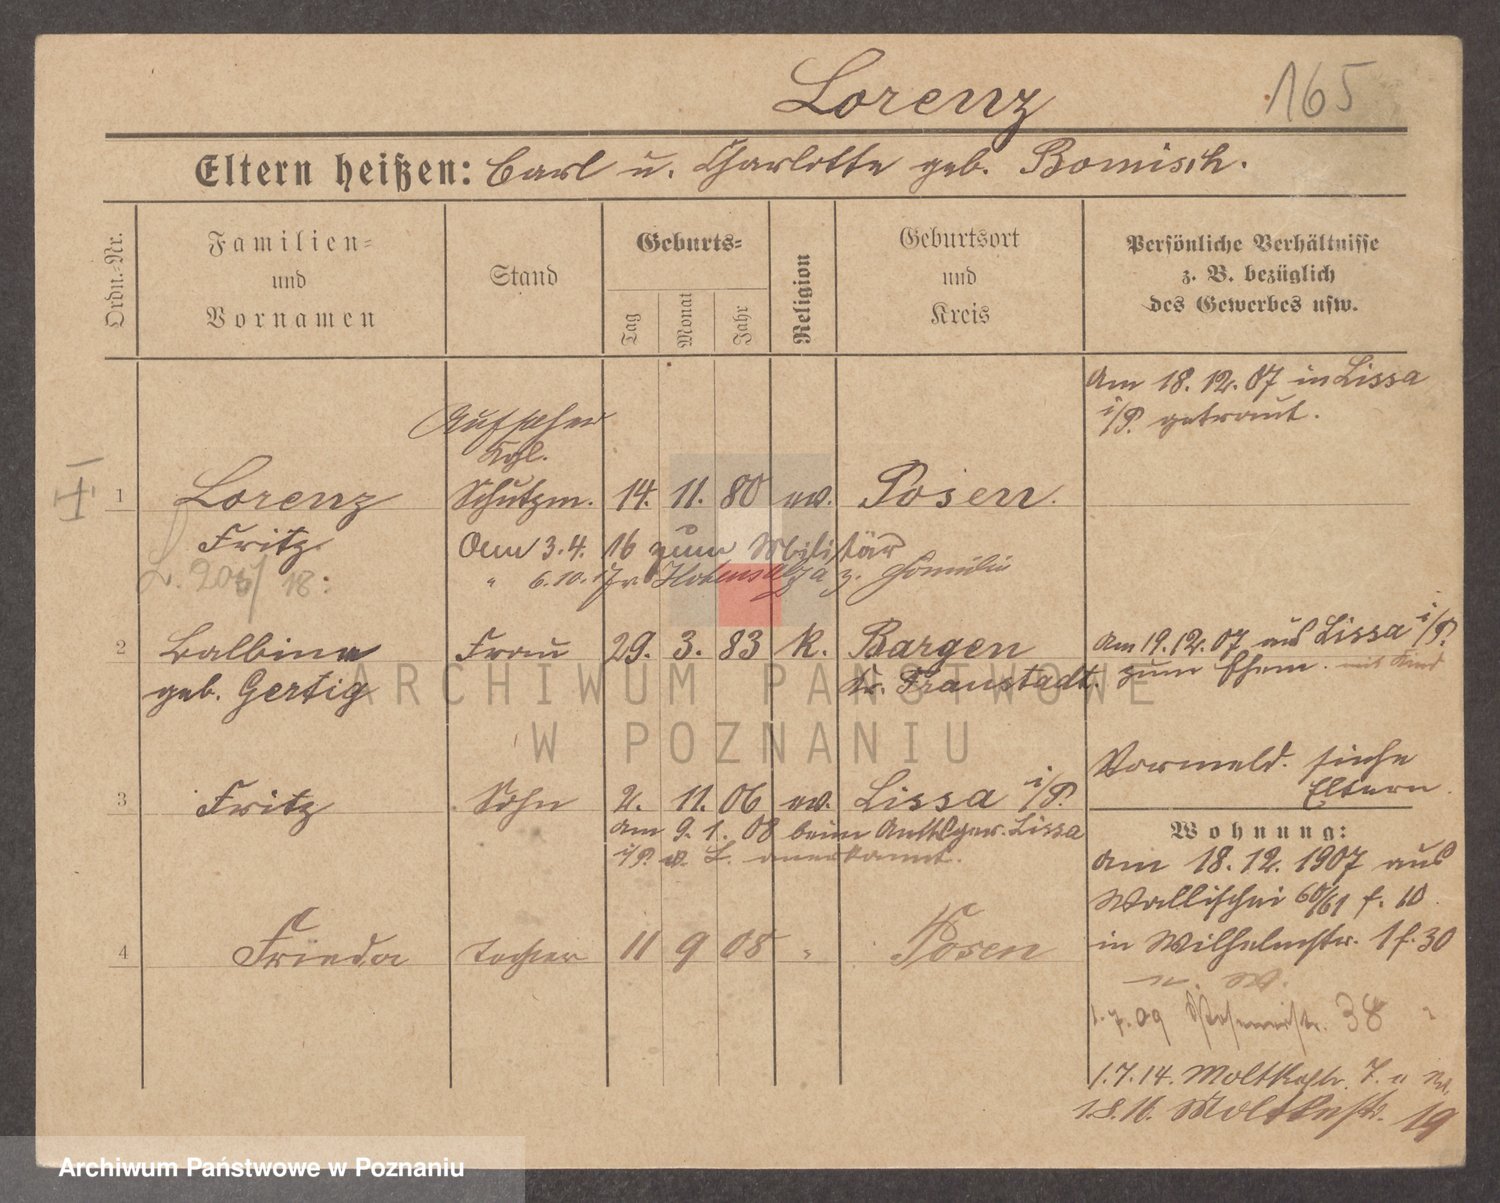 Lorenz
165
Eltern heißen: Carl u. Charlotte geb. Bomisch.
Ordn.-Nr.
Familien-
und
Vornamen
Stand
Geburts-
Tag
Monat
Jahr
Religion
Geburtsort
und
Kreis
Persönliche Verhältnisse
z. B. bezüglich
des Gewerbes usw.
Am 18.12.07 in Lissa
i/P. getraut.
Aufseher
Kgl.
1 Lorenz Schutzm. 14. 11. 80 ev. Posen.
Fritz Am 3.4. 16 zum Militär
" 6.10.17 v. Hohensalza z. Familie
L. 205/18:
2 Balbina Frau 29. 3. 83 k. Bargen
geb. Gertig Kr. Fraustadt.
Am 19.12.07 aus Lissa i/P.
zum Ehem. mit Kind
3 Fritz Sohn 2. 11. 06 ev. Lissa i/P.
Am 9.1.08 beim Amtsger. Lissa
i/P. v. L. anerkannt.
Vormeld. siehe
Eltern.
Wohnung:
Am 18.12.1907 aus
Wallischei 60/61 f. 10
in Wilhelmstr. 1 f. 30
4 Frieda Tochter 11 9 08 " Posen
n. W.
1.7.09 38
1.7.14. Moltkestr. 7.
1.8.16. Moltkestr. 19
ARCHIWUM PAŃSTWOWE
W POZNANIU
Archiwum Państwowe w Poznaniu